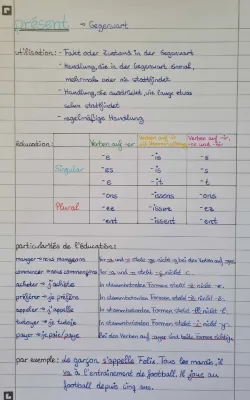 présent → Gegenwart
utilisation: - Fakt oder Zustand in der Gegenwart
- Handlung, die in der Gegenwart einmal,
mehrmals oder nie stattfindet
- Handlung, die ausdrückt, wie lange etwas
schon stattfindet
- regelmäßige Handlung
Verben auf -er
Verben auf -ir
Verben auf -ir,
-re und -oir
Singular
-e -is -s
-es -is -s
-e -it -t
Plural
-ons -issons -ons
-ez -issez -ez
-ent -issent -ent
particularités de l'éducation:
manger → nous mangeons
commencer → nous commençons
acheter → j'achète
préférer → je préfère
appeler → j'appelle
In stammbetonten Formen steht -ll- nicht -l-.
par exemple: Le garçon s'appelle Felix. Tous les mardis, il
va à l'entraînement de football. Il joue au
football depuis cinq ans.